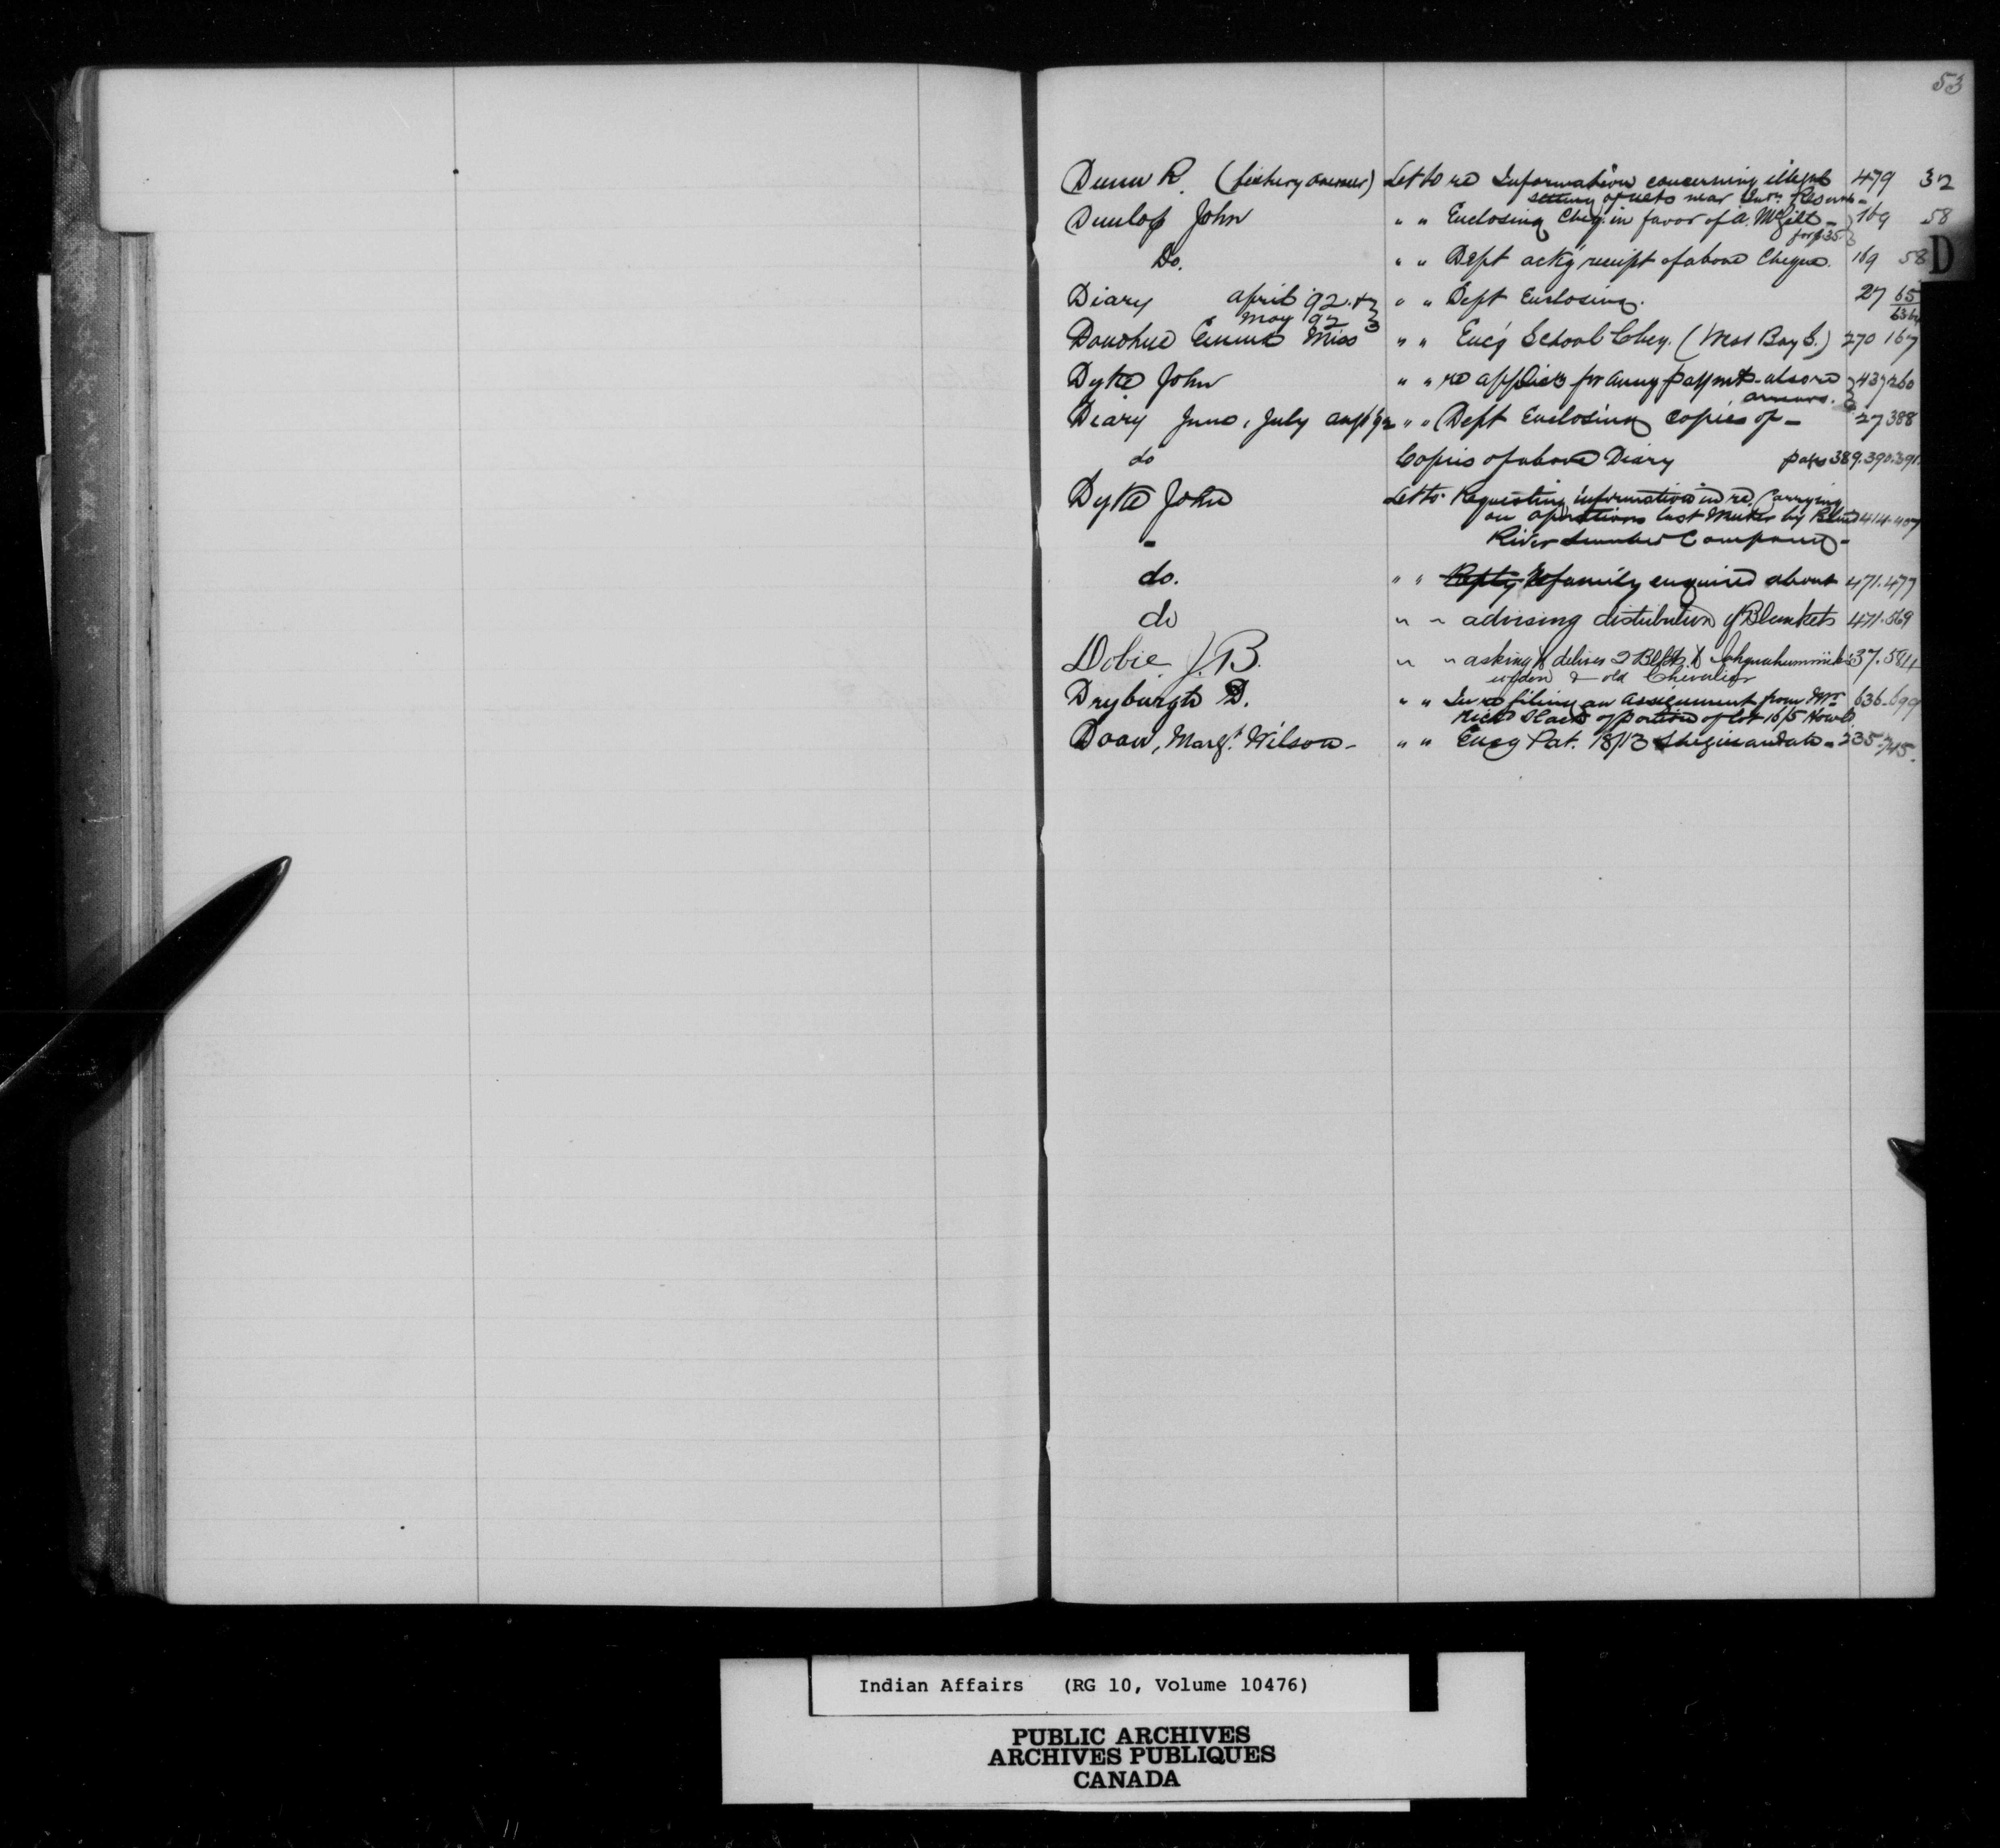 53
Dunn R. (fishery overseer) Let to re Information concerning illegal 479 32
setting of nets near Ind. Reserve -
Dunlop John " " Enclosing Cheq. in favor of A. 169 58
for $35
Do. " " Dept ackg receipt of above Cheque. 169 58
D
Diary april 92. & " " Dept Enclosing. 27 65
May 92 63 64
Donohue Emma Miss " " Encg School Cheq. (West Bay S.) 270 167
Dyke John " " re applicn for anny paymt - also re 437 260
arrears.
Diary June, July augt 92 " " Dept Enclosing copies of - 27 388
do Copies of above Diary pages 389.390.391.
Dyke John Let to Requesting information in re, Carrying
on operations last Winter by Blind 414-407
River Lumber Company -
do. " " Reply re family enquired about 471.477
do " " advising distribution of Blankets 471.569
Dobie J.B. " " asking to deliver 2 Blkts to 37.584
widow & old Chevalier
Dryburgh D. " " In re filing an assignment from Mr. 636-699
Richd Slack of portion of lot 16/5 Howd.
Doan, Margt. Wilson - " " Encg Pat. 18/13 Sheguiandah - 235-745.
Indian Affairs (RG 10, Volume 10476)
PUBLIC ARCHIVES
ARCHIVES PUBLIQUES
CANADA